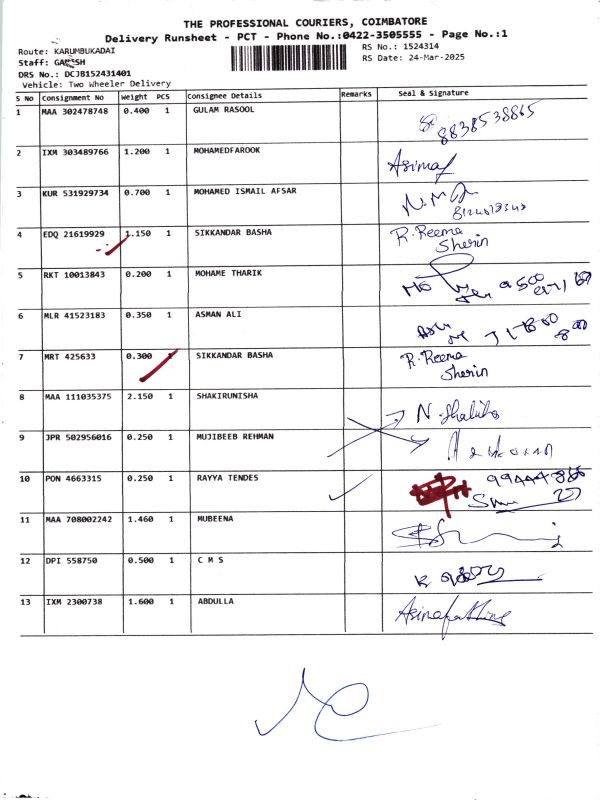 THE PROFESSIONAL COURIERS, COIMBATORE
Delivery Runsheet - PCT - Phone No.:0422-3505555 - Page No.:1
Route: KARUMBUKADAI
RS No.: 1524314
Staff: GANESH
RS Date: 24-Mar-2025
DRS No.: DCJB152431401
Vehicle: Two Wheeler Delivery
S No Consignment No Weight PCS Consignee Details Remarks Seal & Signature
1 MAA 302478748 0.400 1 GULAM RASOOL 8838538865
2 IXM 303489766 1.200 1 MOHAMEDFAROOK
3 KUR 531929734 0.700 1 MOHAMED ISMAIL AFSAR
4 EDQ 21619929 1.150 1 SIKKANDAR BASHA R. Reema
Sherin
5 RKT 10013843 0.200 1 MOHAME THARIK
6 MLR 41523183 0.350 1 ASMAN ALI
7 MRT 425633 0.300 1 SIKKANDAR BASHA R. Reema
Sherin
8 MAA 111035375 2.150 1 SHAKIRUNISHA
9 JPR 502956016 0.250 1 MUJIBEEB REHMAN
10 PON 4663315 0.250 1 RAYYA TENDES
11 MAA 708002242 1.460 1 MUBEENA
12 DPI 558750 0.500 1 C M S
13 IXM 2300738 1.600 1 ABDULLA